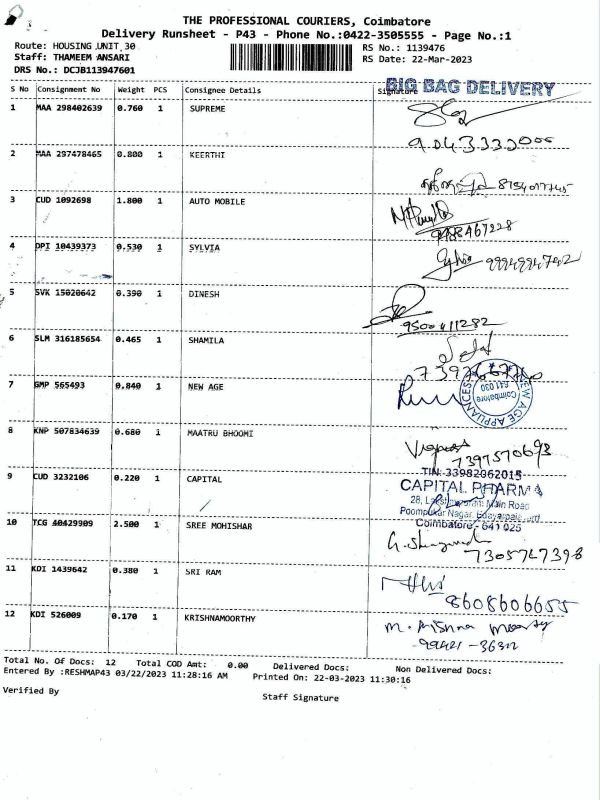 THE PROFESSIONAL COURIERS, Coimbatore
Delivery Runsheet - P43 - Phone No.:0422-3505555 - Page No.:1
Route: HOUSING UNIT 30
Staff: THAMEEM ANSARI
DRS No.: DCJB113947601
RS No.: 1139476
RS Date: 22-Mar-2023
BIG BAG DELIVERY
S No Consignment No Weight PCS Consignee Details Signature
1 MAA 298402639 0.760 1 SUPREME
9043332000
2 MAA 297478465 0.800 1 KEERTHI
3 CUD 1092698 1.800 1 AUTO MOBILE
4 DPI 10439373 0.530 1 SYLVIA
5 SVK 15020642 0.390 1 DINESH
9500411282
6 SLM 316185654 0.465 1 SHAMILA
7 GMP 565493 0.840 1 NEW AGE
NEW AGE APPLIANCES
Coimbatore
641 030
8 KNP 507834639 0.680 1 MAATRU BHOOMI
7397570693
9 CUD 3232106 0.220 1 CAPITAL
TIN: 33982062015
CAPITAL PHARMA
Main Road
Poompukar Nagar,
Coimbatore - 641 025
10 TCG 40429909 2.500 1 SREE MOHISHAR
7305747398
11 KDI 1439642 0.380 1 SRI RAM
8608606655
12 KDI 526009 0.170 1 KRISHNAMOORTHY
Total No. Of Docs: 12 Total COD Amt: 0.00 Delivered Docs: Non Delivered Docs:
Entered By :RESHMAP43 03/22/2023 11:28:16 AM Printed On: 22-03-2023 11:30:16
Verified By
Staff Signature